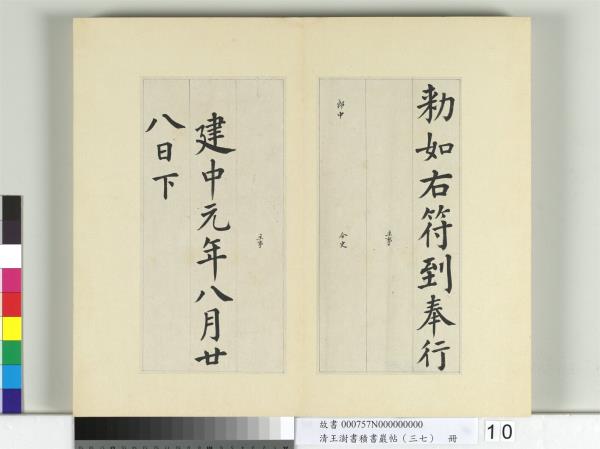 勑如右符到奉行
主事
郎中
令史
主事
建中元年八月廿
八日下
故書 000757N000000000
清王澍書積書巖帖（三七） 冊
10